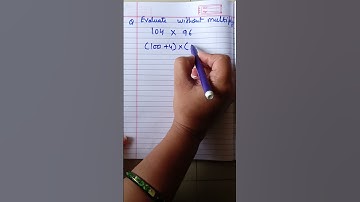 Q Evaluate without multiply
104 x 96
(100+4)x(